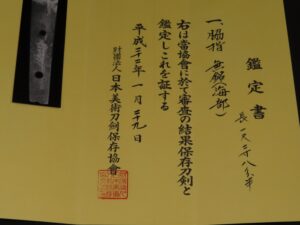 鑑定書
一、脇指 無銘(海部)
長一尺二寸八分半
右は當協會に於て審査の結果保存刀剣と
鑑定しこれを証する
平成二十二年一月二十九日
財團法人日本美術刀剣保存協會